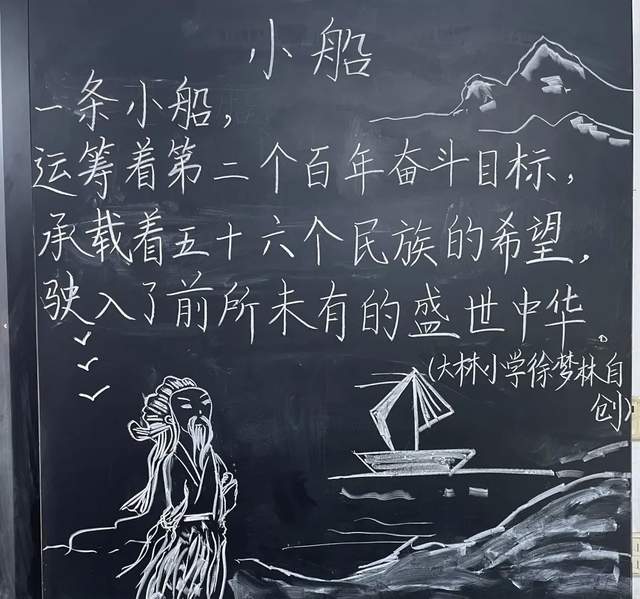 小船
一条小船，
运筹着第二个百年奋斗目标，
承载着五十六个民族的希望，
驶入了前所未有的盛世中华。
(大林小学徐梦林自
创)